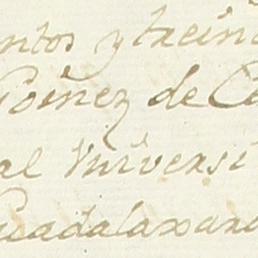 ntos y trein
Goinez de Ce
al Universi
Guadalaxara